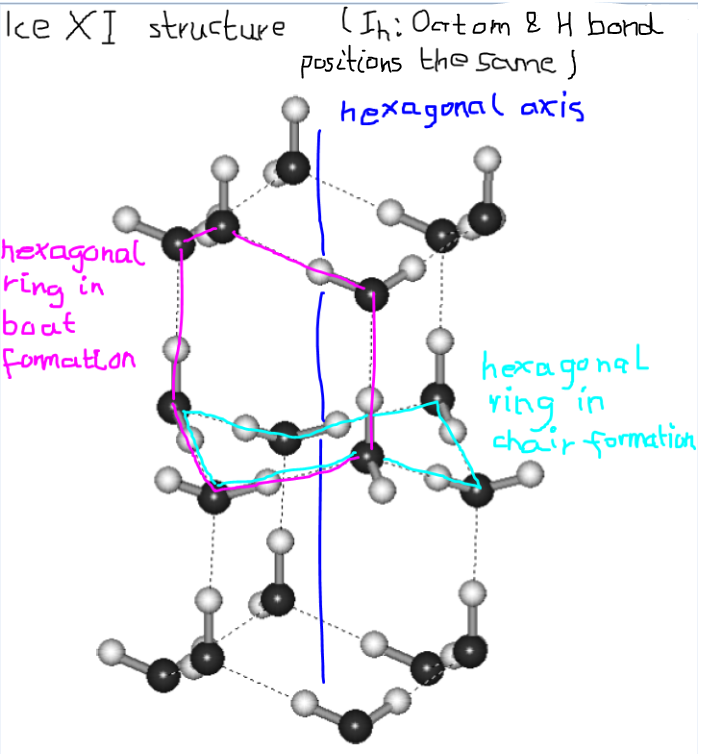 Ice XI structure (Ih: O atom & H bond
positions the same)
hexagonal axis
hexagonal
ring in
boat
formation
hexagonal
ring in
chair formation